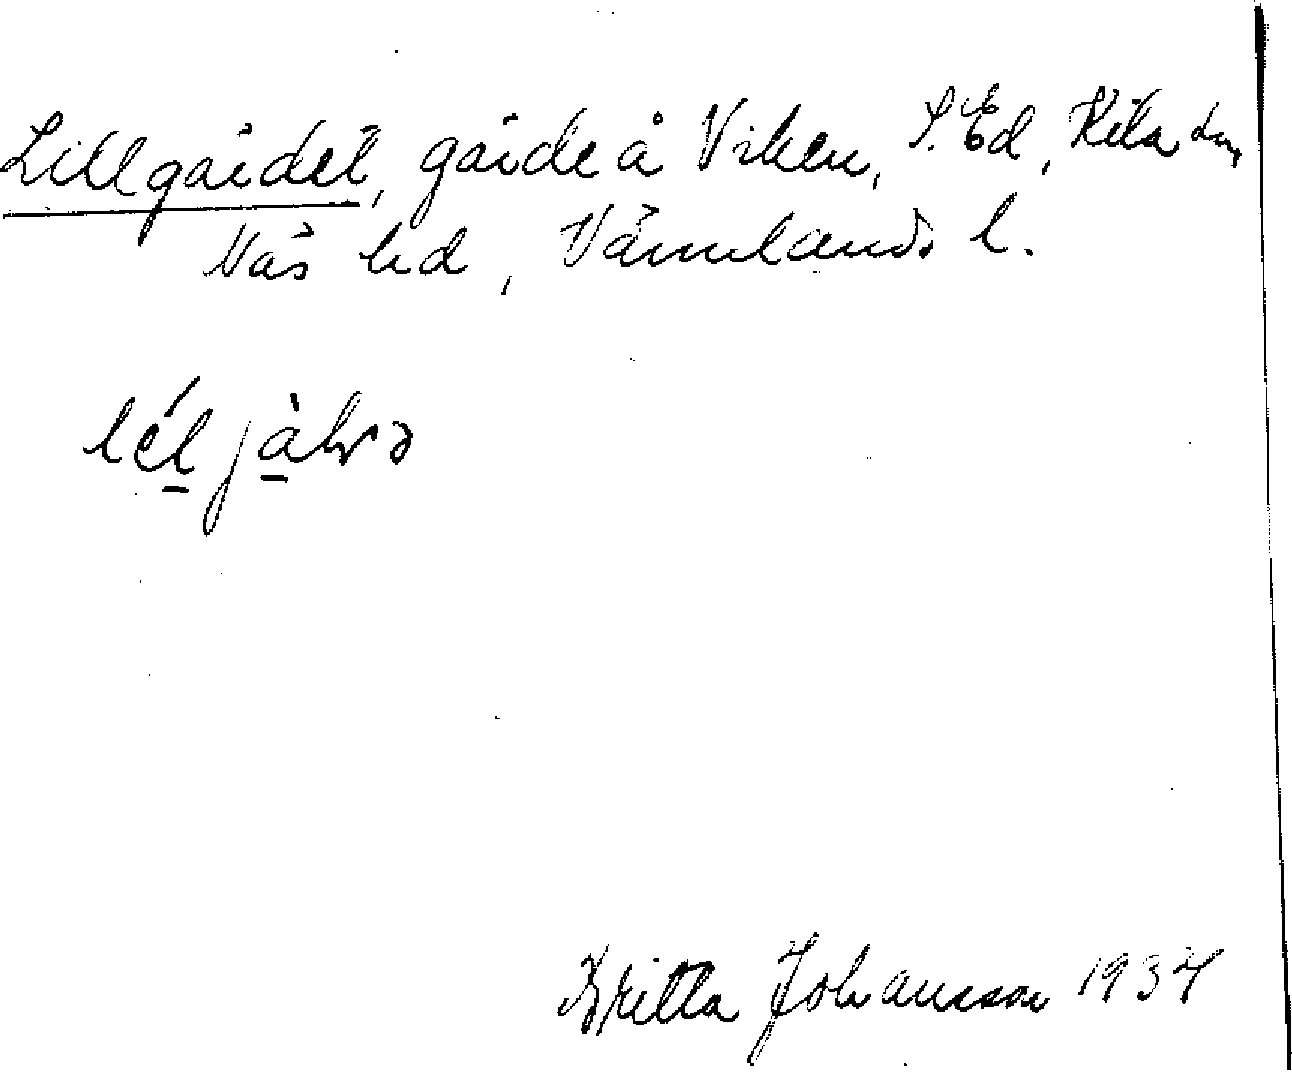 Lillgärdet, gärde å Viken, S. Ed, Kila sn,
Näs hd, Värmlands l.
lél jàlɤə
Britta Johansson 1934